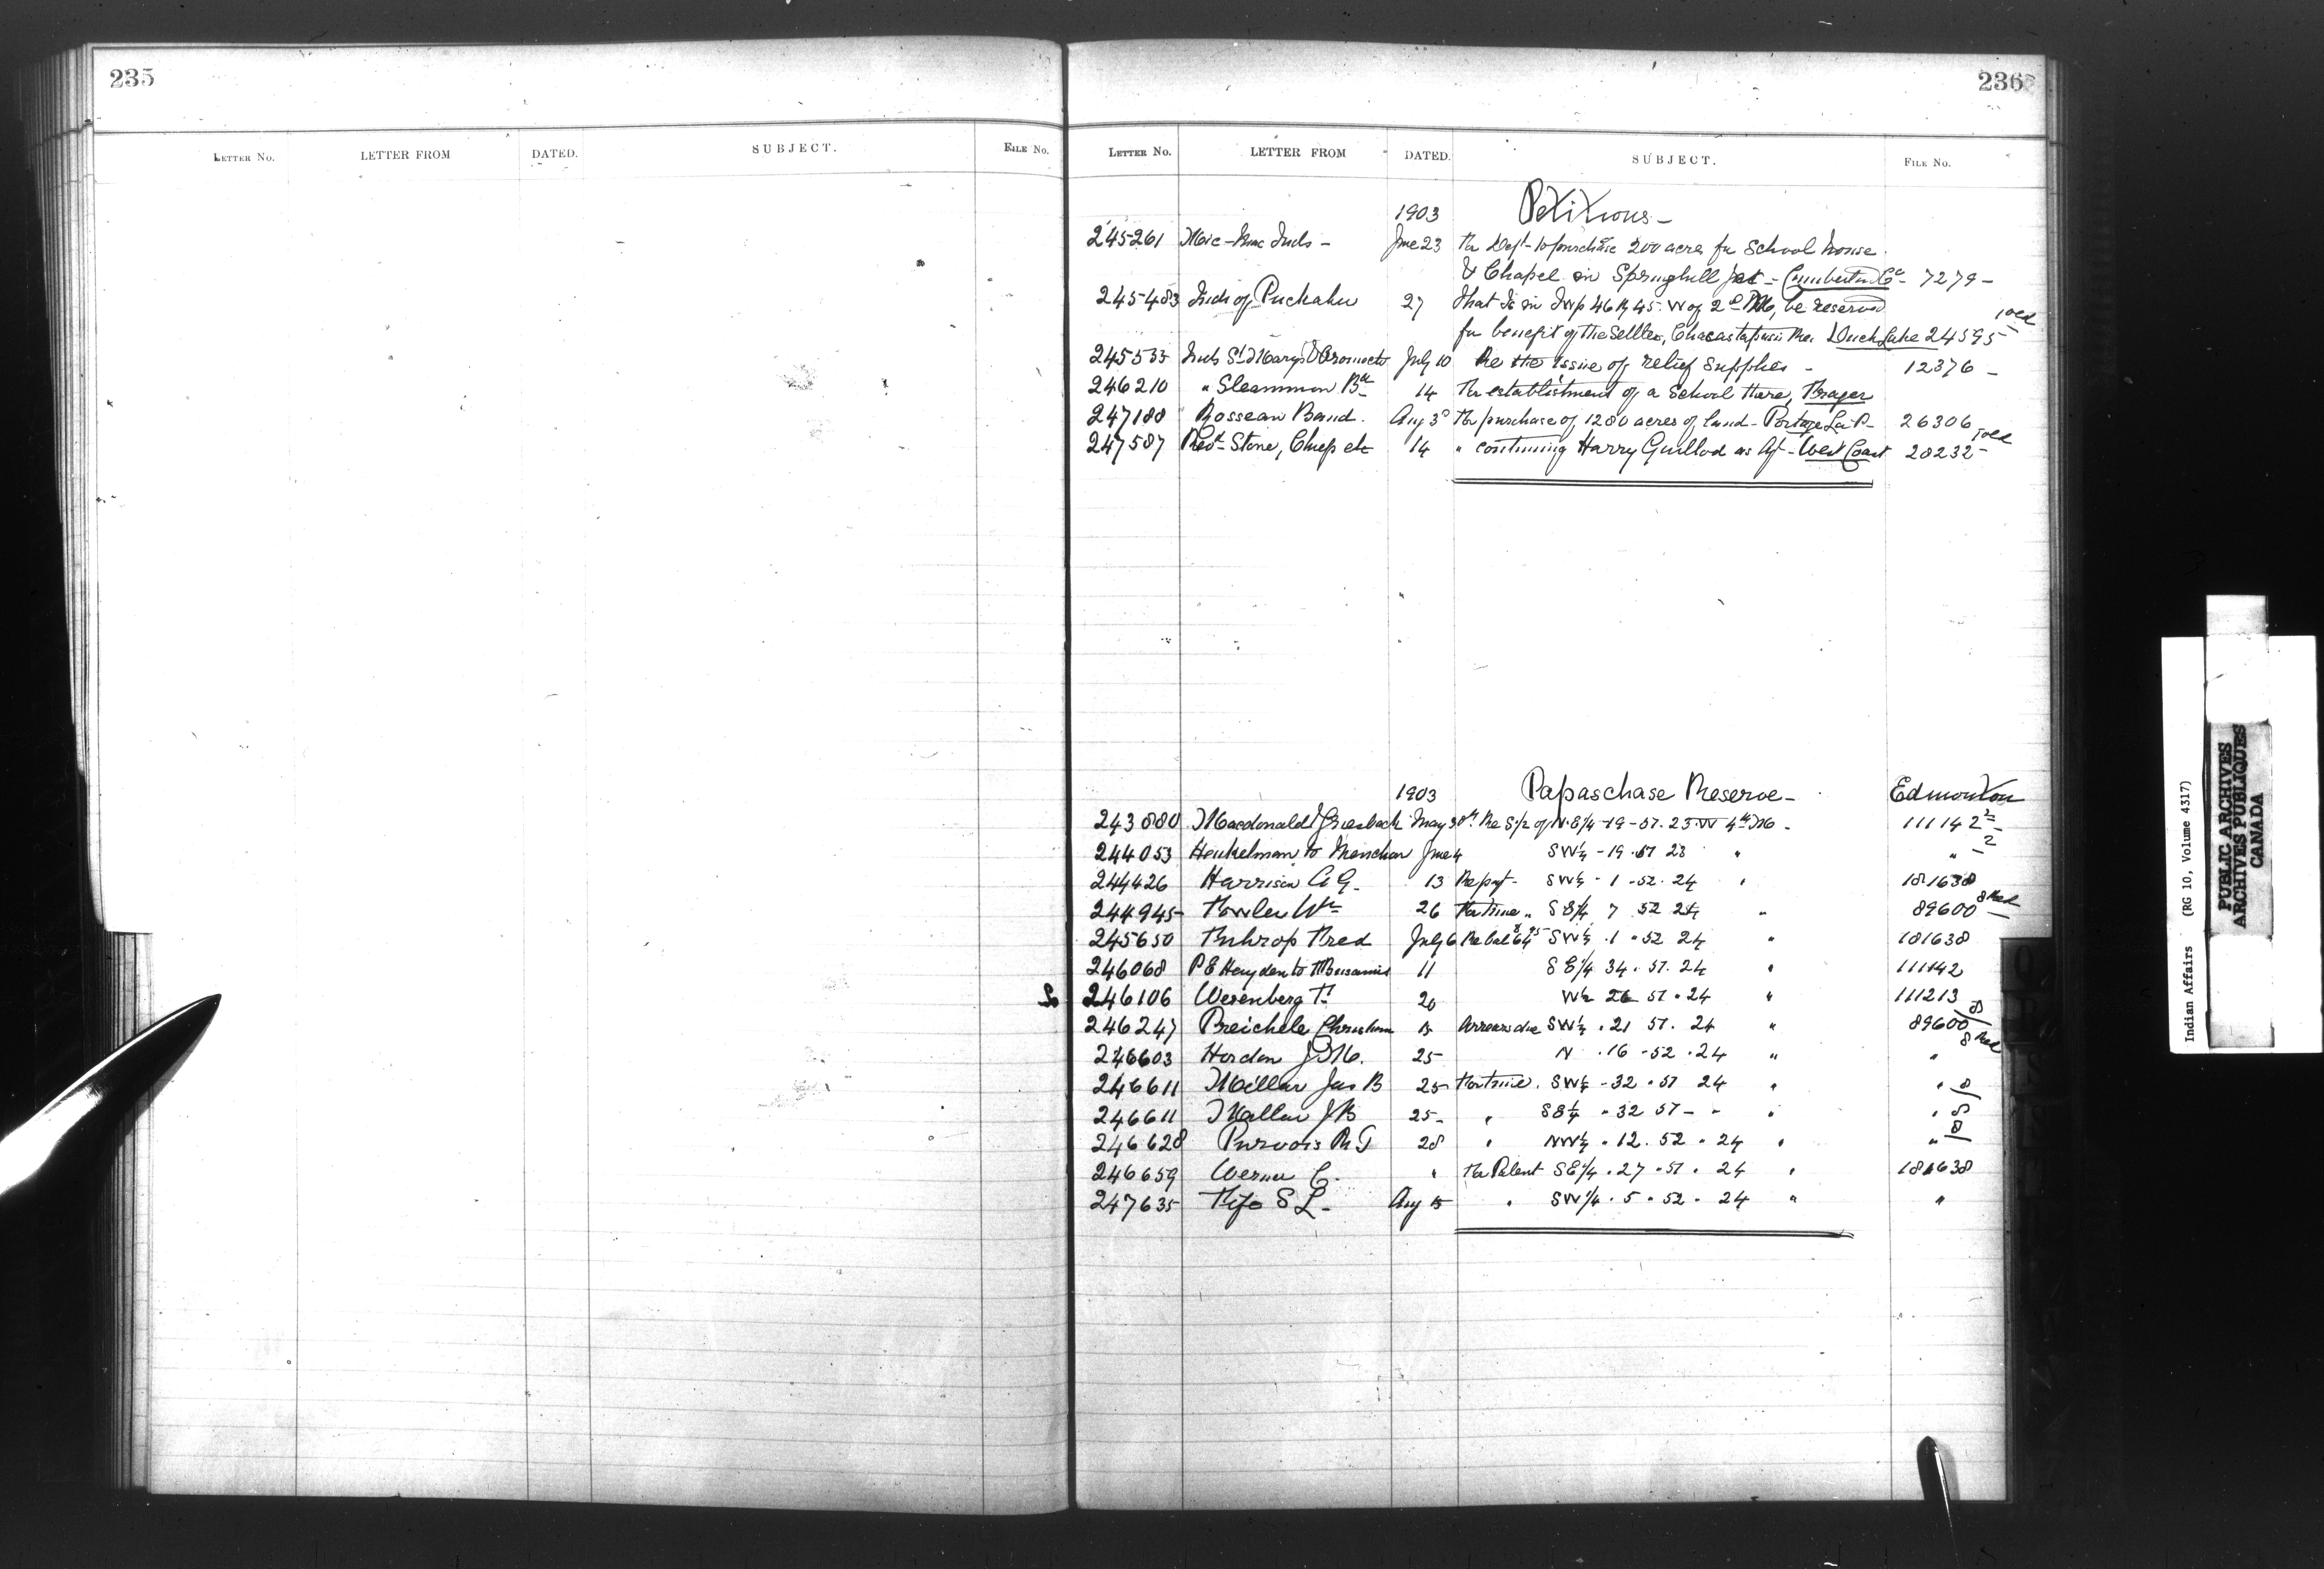 235
LETTER No. LETTER FROM DATED. SUBJECT. FILE No.
236
LETTER No. LETTER FROM DATED. SUBJECT. FILE No.
1903 Petitions -
245261 Mic-Mac Inds - June 23 For Dept to purchase 200 acres for School house
& Chapel in Springhill Jct - Cumberland Co - 7279 -
245483 Inds of 27 That in Twp 46 W of 2d M, be reserved
for benefit of the Duck Lake 24595
245535 Inds St Marys & Oromocto July 10 Re the issue of relief supplies - 12376 -
246210 " Sleammon Bd 14 For establishment of a School there, Fraser
247188 " Rosseau Band. Aug 3 For purchase of 1280 acres of land - Portage La P - 26306
247587 Stone, Chief etc 14 " continuing Harry Guillod as Agt - West Coast 20232 -
1903 Papaschase Reserve - Edmonton
243880 Macdonald & Griesbach May 30 Re S/2 of N.E/4 - 19 - 51. 23. W 4th M - 111142
244053 Henkelman to June 4 SW¼ - 19 . 51 23 " " 2
244426 Harrison A G. 13 Re pay't - SW¼ - 1 - 52. 24 " 181638
244945 Fowler Wm 26 For time " S E/4 7 52 24 " 89600
245650 Fred July 6 Re bal SW¼ . 1 - 52 24 " 181638
246068 P E Hayden to 11 S E/4 34. 51. 24 " 111142
246106 Wesenberg F. 20 W½ 26 51 . 24 " 111213
246247 Preichele Christian 15 Arrears due SW¼ . 21 51. 24 " 89600
246603 Horden J M. 25 N . 16 - 52 . 24 " "
246611 Millar Jas B 25 For time. SW¼ - 32 . 51 24 " " 8
246611 Millar J B 25 - " SE¼ " 32 51 - " " " 8
246628 Purvois R T 28 " NW¼ . 12. 52 . 24 " " 8
246659 Werner C. " For Patent SE/4 . 27 . 51 . 24 " 181638
247635 Fife S L - Aug 15 " SW/4 . 5 . 52 . 24 " "
Indian Affairs (RG 10, Volume 4317)
PUBLIC ARCHIVES
ARCHIVES PUBLIQUES
CANADA